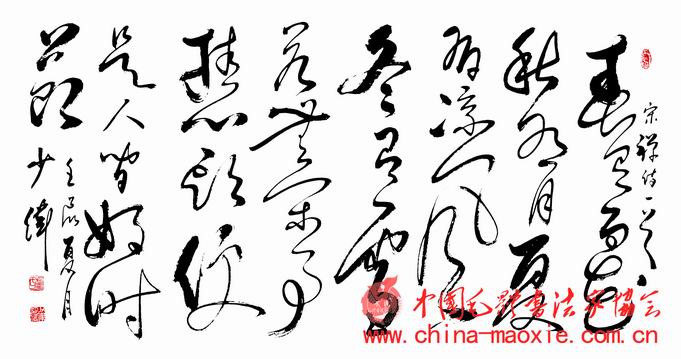 宋禅诗一首
春有百花
秋有月夏
有凉風
冬有雪
若無閒事
挂心頭便
是人间好时
節
壬辰夏月
少衛
中國毛體書法家協會
www.china-maoxie.com.cn